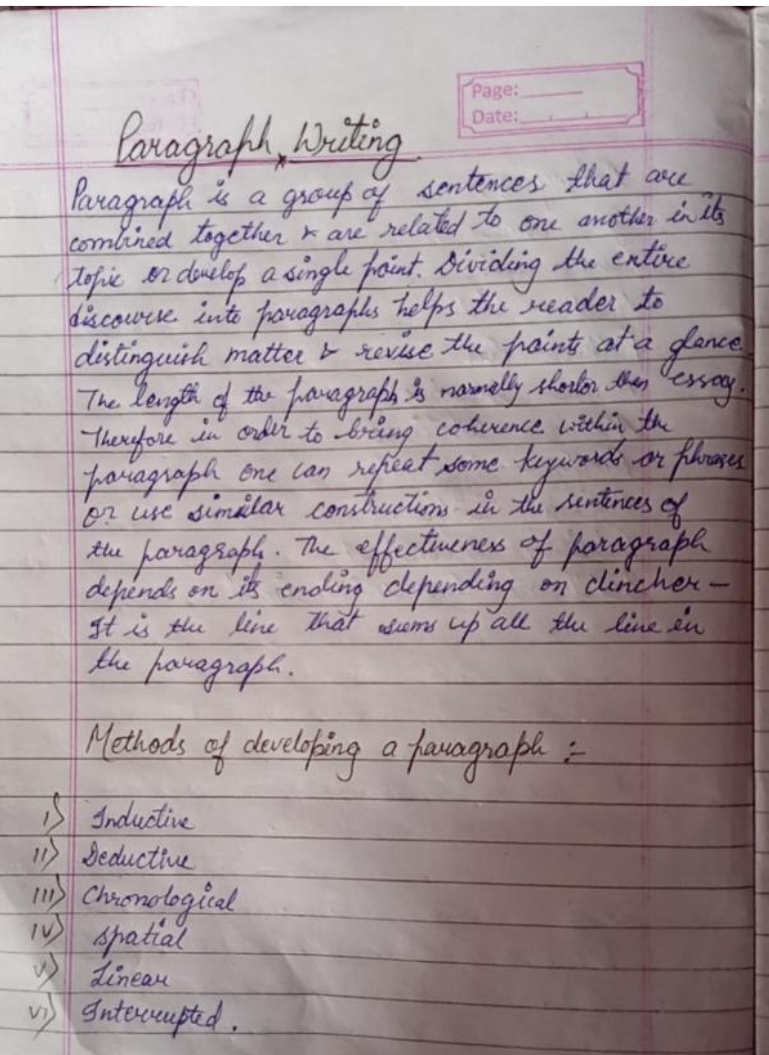 Page:
Date:
Paragraph Writing
Paragraph is a group of sentences that are
combined together & are related to one another in its
topic or develop a single point. Dividing the entire
discourse into paragraphs helps the reader to
distinguish matter & revise the points at a glance.
The length of the paragraph is normally shorter then essay.
Therefore in order to bring coherence within the
paragraph one can repeat some keywords or phrases
or use similar constructions in the sentences of
the paragraph. The effectiveness of paragraph
depends on its ending depending on clincher -
It is the line that sums up all the line in
the paragraph.
Methods of developing a paragraph :-
I) Inductive
II) Deductive
III) Chronological
IV) Spatial
V) Linear
VI) Interrupted.